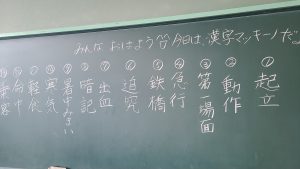 みんな おはよう 今日は、漢字マッキーノだ
① 起立
② 動作
③ 第一場面
④ 急行
⑤ 鉄橋
⑥ 追究
⑦ 出血
⑧ 暗記
⑨ 暑中みまい
⑩ 寒気
⑪ 軽食
⑫ 向中
乗客